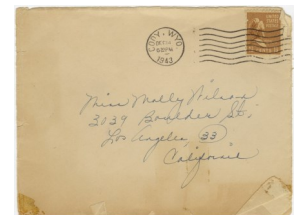 CODY. WYO.
1943
Miss Molly Wilson
3039 Boulder St.
Los Angeles (33)
California